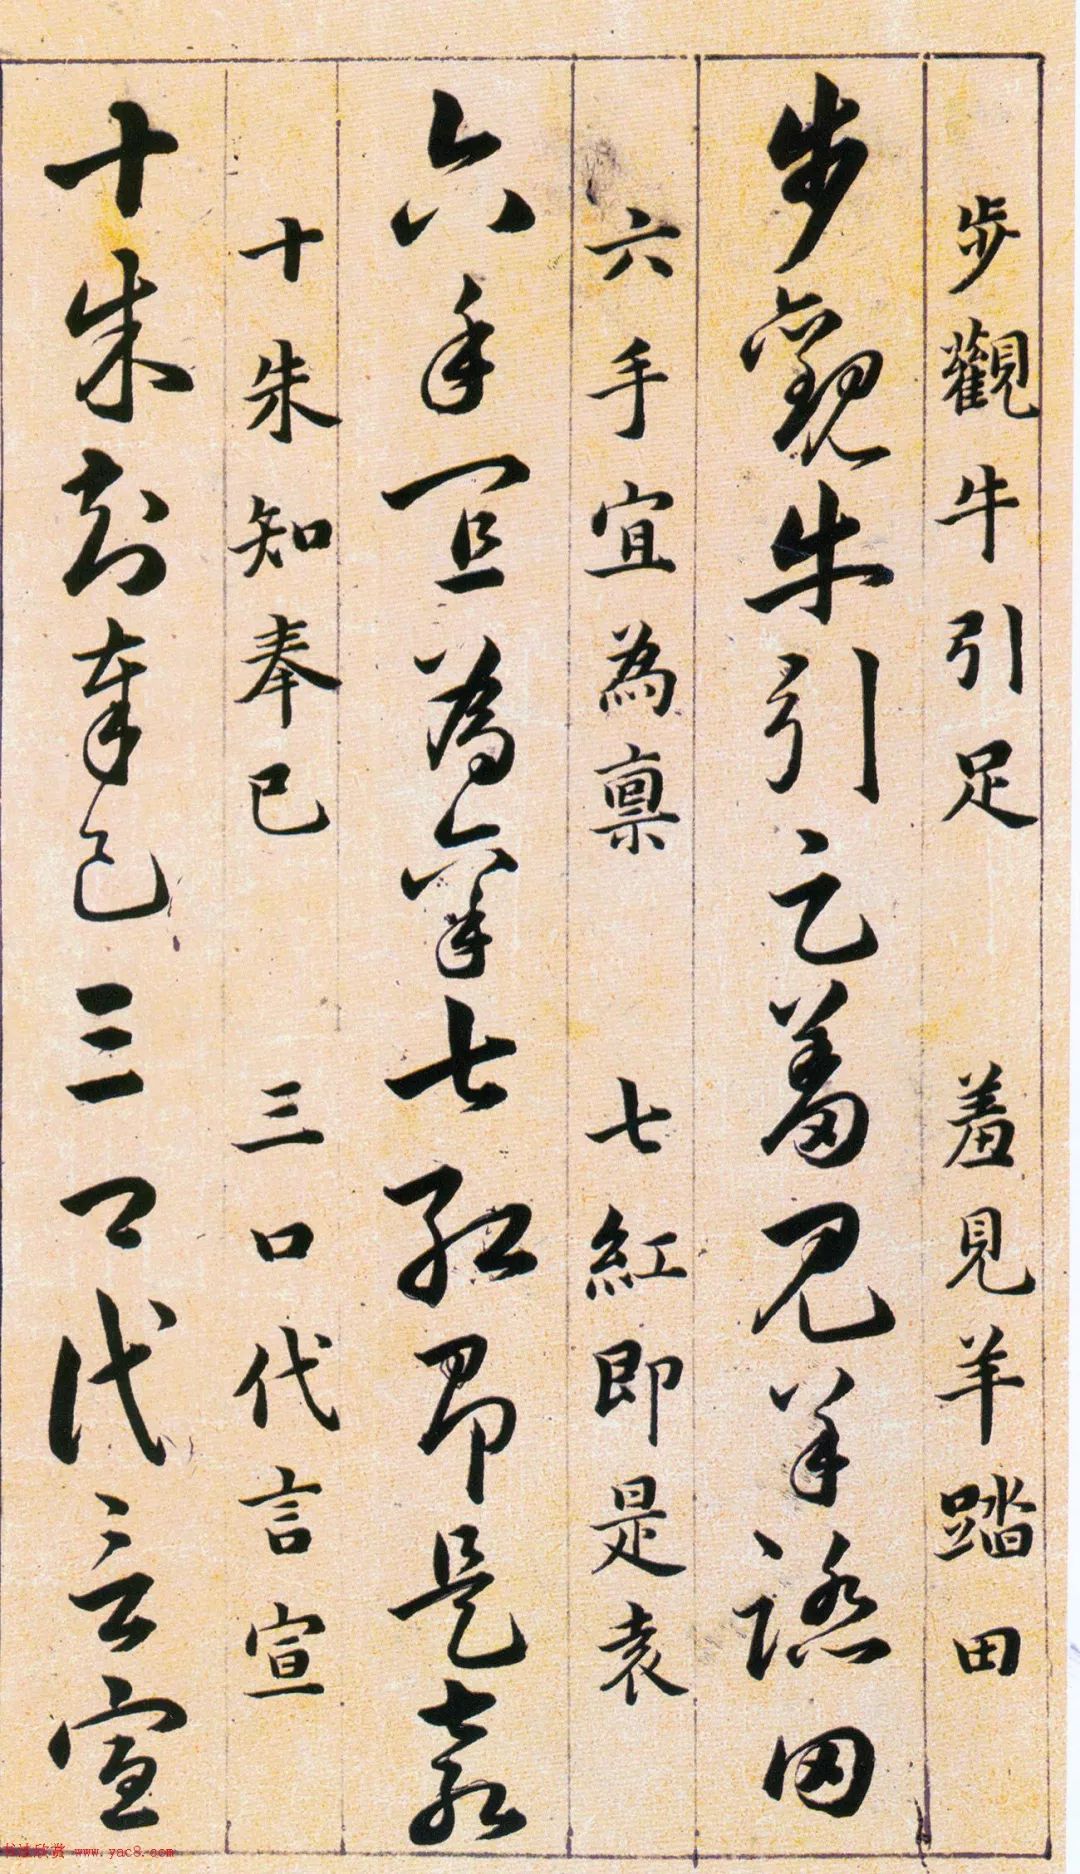 步觀牛引足 羞見羊踏田
步觀牛引足羞見羊踏田
六手宜為稟 七紅即是袁
六手宜為稟七紅即是袁
十朱知奉已 三口代言宣
十朱知奉已三口代言宣
书法欣赏 www.yac8.com